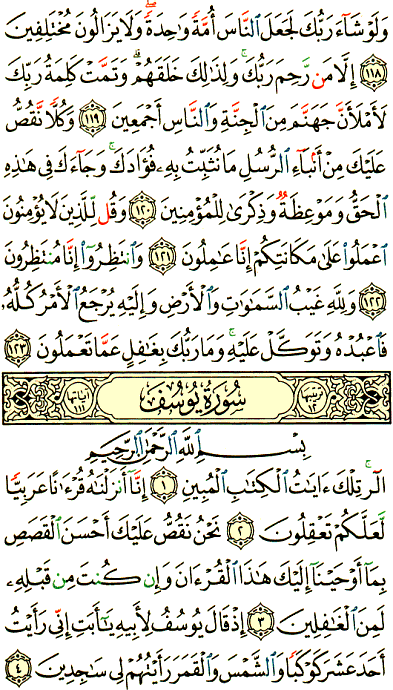 وَلَوْ شَآءَ رَبُّكَ لَجَعَلَ ٱلنَّاسَ أُمَّةً وَٰحِدَةً ۖ وَلَا يَزَالُونَ مُخْتَلِفِينَ
۝١١٨ إِلَّا مَن رَّحِمَ رَبُّكَ ۚ وَلِذَٰلِكَ خَلَقَهُمْ ۗ وَتَمَّتْ كَلِمَةُ رَبِّكَ
لَأَمْلَأَنَّ جَهَنَّمَ مِنَ ٱلْجِنَّةِ وَٱلنَّاسِ أَجْمَعِينَ ۝١١٩ وَكُلًّا نَّقُصُّ
عَلَيْكَ مِنْ أَنۢبَآءِ ٱلرُّسُلِ مَا نُثَبِّتُ بِهِۦ فُؤَادَكَ ۚ وَجَآءَكَ فِى هَٰذِهِ
ٱلْحَقُّ وَمَوْعِظَةٌ وَذِكْرَىٰ لِلْمُؤْمِنِينَ ۝١٢٠ وَقُل لِّلَّذِينَ لَا يُؤْمِنُونَ
ٱعْمَلُوا۟ عَلَىٰ مَكَانَتِكُمْ إِنَّا عَٰمِلُونَ ۝١٢١ وَٱنتَظِرُوٓا۟ إِنَّا مُنتَظِرُونَ
۝١٢٢ وَلِلَّهِ غَيْبُ ٱلسَّمَٰوَٰتِ وَٱلْأَرْضِ وَإِلَيْهِ يُرْجَعُ ٱلْأَمْرُ كُلُّهُۥ
فَٱعْبُدْهُ وَتَوَكَّلْ عَلَيْهِ ۚ وَمَا رَبُّكَ بِغَٰفِلٍ عَمَّا تَعْمَلُونَ ۝١٢٣
ترتيبها ١٢ سُورَةُ يُوسُفَ آياتها ١١١
بِسْمِ ٱللَّهِ ٱلرَّحْمَٰنِ ٱلرَّحِيمِ
الٓر ۚ تِلْكَ ءَايَٰتُ ٱلْكِتَٰبِ ٱلْمُبِينِ ۝١ إِنَّآ أَنزَلْنَٰهُ قُرْءَٰنًا عَرَبِيًّا
لَّعَلَّكُمْ تَعْقِلُونَ ۝٢ نَحْنُ نَقُصُّ عَلَيْكَ أَحْسَنَ ٱلْقَصَصِ
بِمَآ أَوْحَيْنَآ إِلَيْكَ هَٰذَا ٱلْقُرْءَانَ وَإِن كُنتَ مِن قَبْلِهِۦ
لَمِنَ ٱلْغَٰفِلِينَ ۝٣ إِذْ قَالَ يُوسُفُ لِأَبِيهِ يَٰٓأَبَتِ إِنِّى رَأَيْتُ
أَحَدَ عَشَرَ كَوْكَبًا وَٱلشَّمْسَ وَٱلْقَمَرَ رَأَيْتُهُمْ لِى سَٰجِدِينَ ۝٤